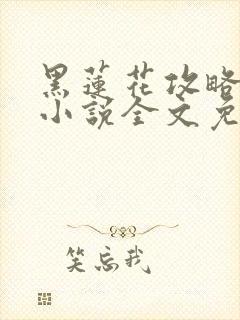 黑莲花攻略
小說全文免
笑忘我